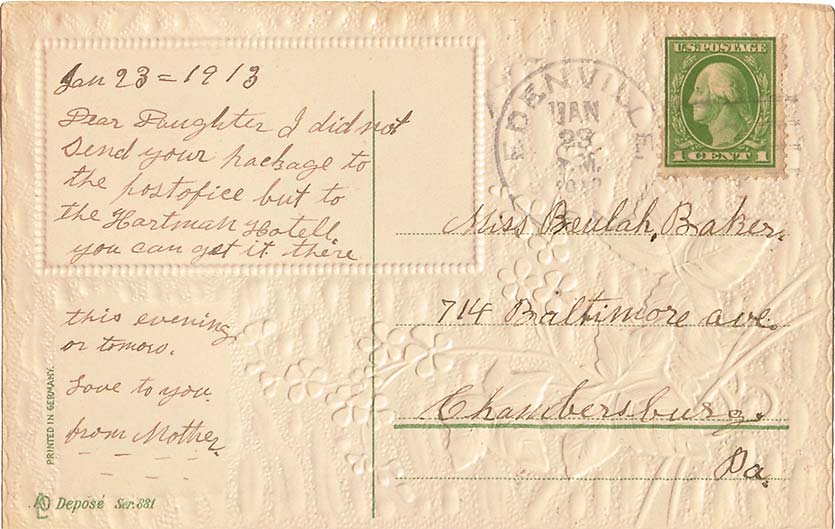 Jan 23 = 1913
Dear Daughter I did not
send your package to
the postofice but to
the Hartman Hotell
you can get it there
this evening
or tomow.
Love to you.
from Mother.
PRINTED IN GERMANY.
Deposé Ser. 681
EDENVILLE
JAN
23
U.S. POSTAGE
1 CENT 1
Miss Beulah, Baker.
714 Baltimore ave.
Chambersburg.
Pa.